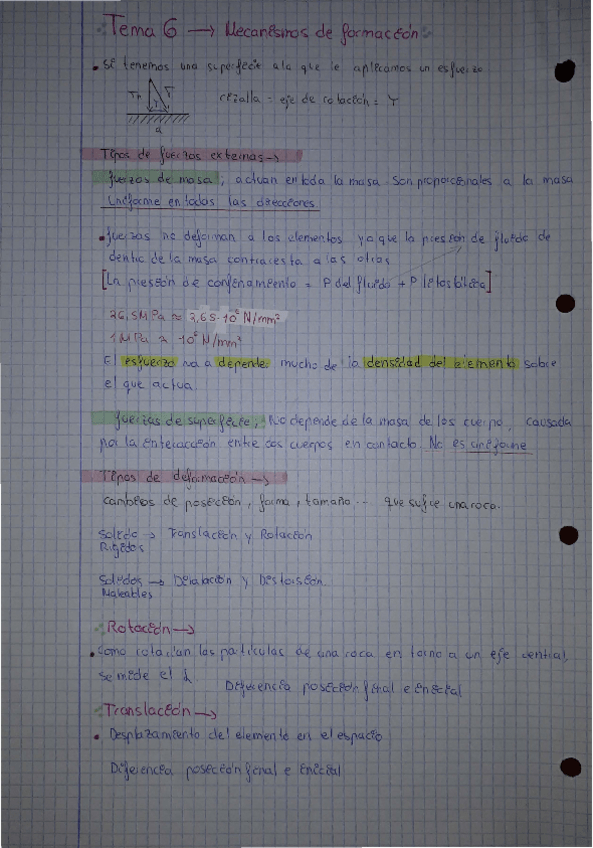 Tema 6 → Mecanismos de formación
• Si tenemos una superficie a la que le aplicamos un esfuerzo
Tn T
cizalla = eje de rotación = γ
a
Tipos de fuerzas externas →
fuerzas de masa; actuan en toda la masa son proporcionales a la masa
Uniforme en todos las direcciones
• fuerzas no deforman a los elementos ya que la presión de fluido de
dentro de la masa contraresta a las otras
[La presión de confinamiento = P del fluido + P litostática]
26,5MPa ≈ 2,65·10⁶ N/mm²
1 MPa ≈ 10⁶ N/mm²
El esfuerzo va a depende mucho de la densidad del elemento sobre
el que actua
fuerzas de superficie; No depende de la masa de los cuerpo, causada
por la interacción entre dos cuerpos en contacto. No es uniforme
Tipos de deformación →
cambios de posición, forma, tamaño ... que sufre una roca.
Solido → Translación y Rotación
Rigidos
Solidos → Dilatación y Distorsión
Maleables
Rotación →
• Como rotarian las particulas de una roca en torno a un eje central,
se mide el
Diferencia posición final e inicial
Translación →
• Desplazamiento del elemento en el espacio
Diferencia posición final e inicial